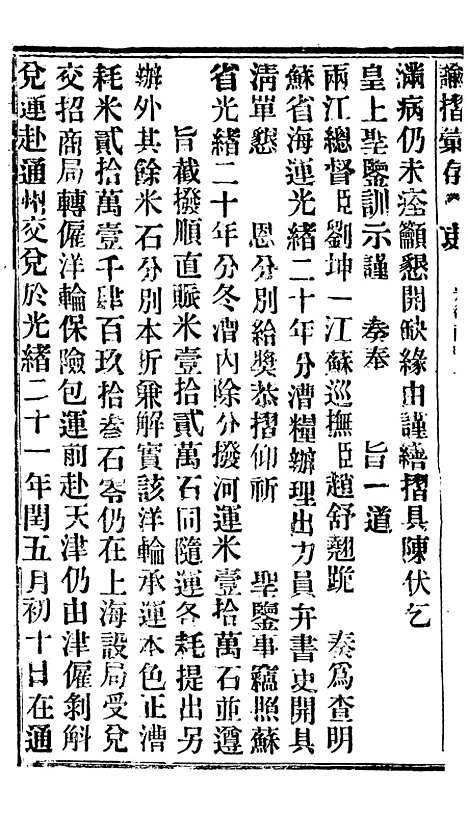 諭摺彙存
滿病仍未痊籲懇開缺緣由謹繕摺具陳伏乞
皇上聖鑒訓示謹　奏奉　旨一道
兩江總督臣劉坤一江蘇巡撫臣趙舒翹跪　奏爲查明
蘇省海運光緒二十年分漕糧辦理出力員弁書史開具
清單懇　恩分別給獎恭摺仰祈　聖鑒事竊照蘇
省光緒二十年分冬漕內除分撥河運米壹拾萬石並遵
旨截撥順直賑米壹拾貳萬石同隨運各耗提出另
辦外其餘米石分別本折兼解實該洋輪承運本色正漕
耗米貳拾萬壹千肆百玖拾叄石零仍在上海設局受兌
交招商局轉僱洋輪保險包運前赴天津仍由津僱剝斛
兌運赴通州交兌於光緒二十一年閏五月初十日在通